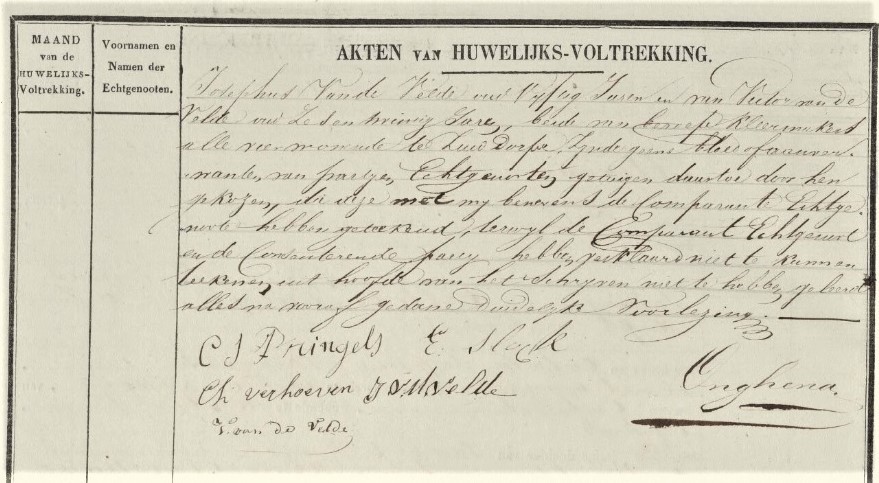 MAAND
van de
HUWELIJKS-
Voltrekking.
Voornamen en
Namen der
Echtgenooten.
AKTEN VAN HUWELIJKS-VOLTREKKING.
Josephus Vande Velde oud Vyftig Jaren en van Victor van de
Velde oud Zes en twintig Jaren, beide van beroep Kleermakers
alle vier woonende te Zuiddorpe, zynde geene bloed of aanver-
wanten van partyen Echtgenooten, getuigen daartoe door hen
gekozen, die deze met my benevens de Comparante Echtge-
noote hebben geteekend, terwyl de Comparant Echtgenoot
en de Consenterende party hebben verklaard niet te kunnen
teekenen, uit hoofde van het schryven niet te hebben geleerd
alles na vooraf gedane Duidelyke Voorlezing.
C J Pringels E. Sleck
Ch verhoeven J V d Velde
V. van de Velde